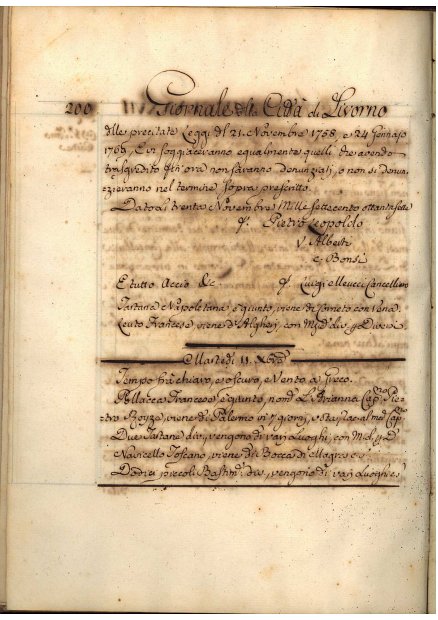 200 Giornale della Città di Livorno
dlle precitate Leggi dl 21. Novembre 1758, e 24 Gennajo
176, E vi soggiaceranno equalmente quelli che avendo
trasgredito fin'ora non saranno denunziati, o non si denun
zieranno nel termine sopra prescritto.
Dato li trenta Novembre Mille settecento ottantasette
Pietro Leopoldo
V Alberti
C Bonsi
E tutto Accio &c Luigi Mellucci Cancelliere
Tartana Napoletana è giunto, viene di con Vena
Leuto Francese, viene d'Algheri, con
Martedì 11. Xbre
Tempo frà chiaro, e oscuro, e Vento a Greco.
Pollacca Francese è giunto, nom. L'Arianna Cap. Pie
tro viene di Palermo in 7 giorni,
Due Tartane dte, vengono di varj Luoghi, con
Navicello Toscano, viene dlla Bocca di Magra
Dodici piccoli Bastim. dti, vengono di varj Luoghi